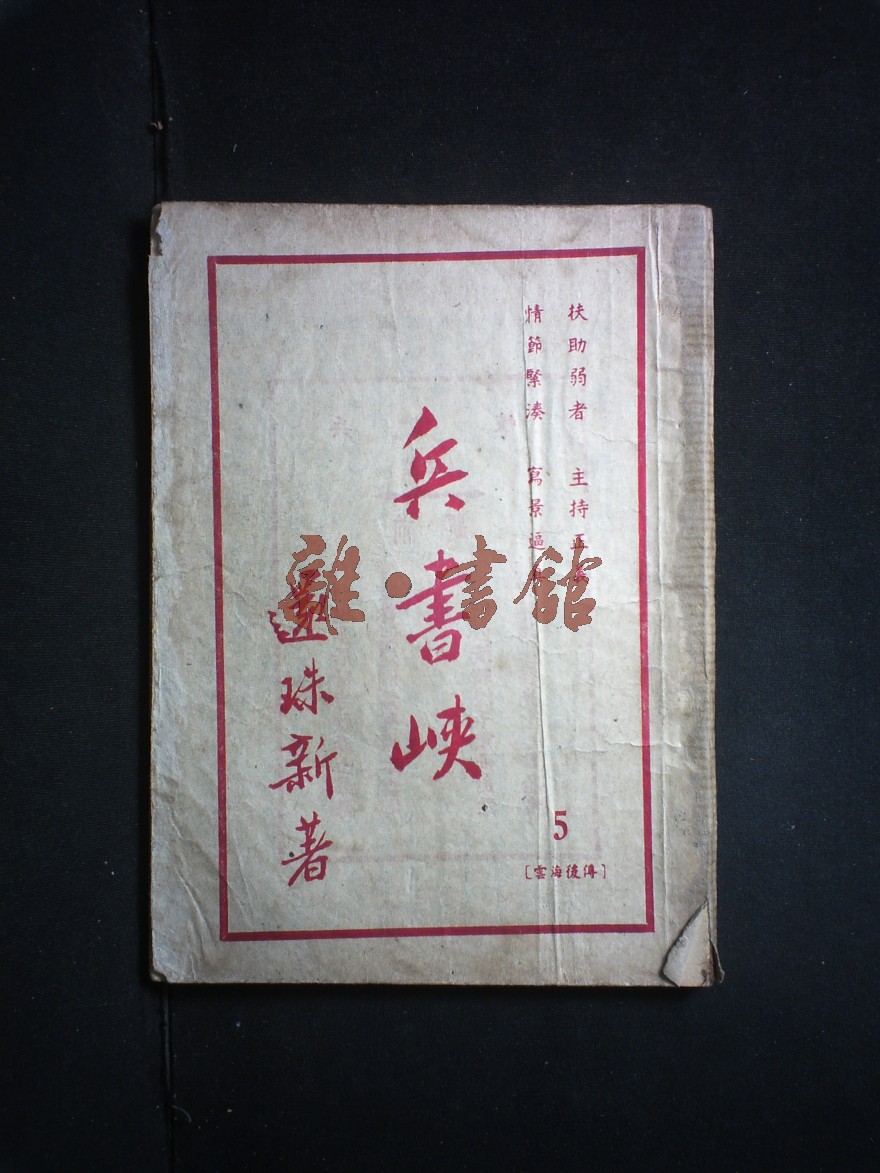 扶助弱者 主持正
情節緊湊 寫景逼
兵書峽
還珠新著
5
[雲海後傳]
雜·書館